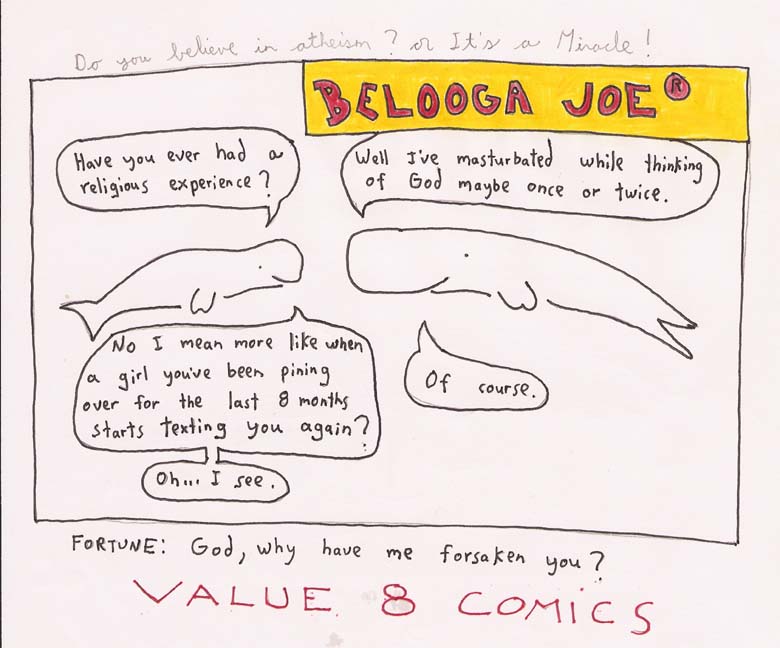 Do you believe in atheism? or It's a Miracle!
BELOOGA JOE®
Have you ever had a
religious experience?
Well I've masturbated while thinking
of God maybe once or twice.
No I mean more like when
a girl you've been pining
over for the last 8 months
starts texting you again?
Of course.
Oh... I see.
FORTUNE: God, why have me forsaken you?
VALUE 8 COMICS